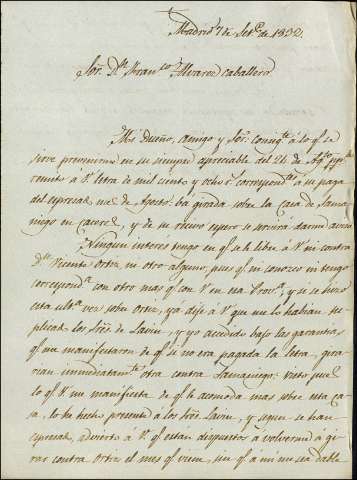 Madrid 7 de Set.e de 1832
Sor. Dn. Fran.co Alvarez caballero
Mi Dueño, amigo y Sor: consig.te á lo q.e se
sirve prevenirme en su siempre apreciable del 26 de Ag.to pp.do
remito á V. letra de mil ciento y ocho r.s correspond.tes á su paga
del espresado mes de Agosto: bá girada sobre la Casa de Sama-
niego en Caceres, y de su recivo espero se servirá darme aviso
Ningun interes tengo en q.e se le libre á V. ni contra
Dn. Vicente Ortiz, ni otro alguno, pues q.e ni conozco ni tengo
correspond.a con otro mas q.e con V. en esa Prov.a, y si se hizo
esta ult.a vez sobre Ortiz, yá dije á V. que me lo habian su-
plicado los Sres. de Lavin, y yo accedido bajo las garantias
q.e me manifestaron de q.e si no era pagada la letra, gira-
rian inmediatam.te otra contra Samaniego: Visto pues
lo q.e V. me manifiesta de q.e le acomoda mas sobre esta ca-
sa, lo he hecho presente á los Sres. Lavin, y segun se han
espresado, advierto á V. q.e estan dispuestos á volverme á gi-
rar contra Ortiz el mes q.e viene, sin q.e á mi me sea dable